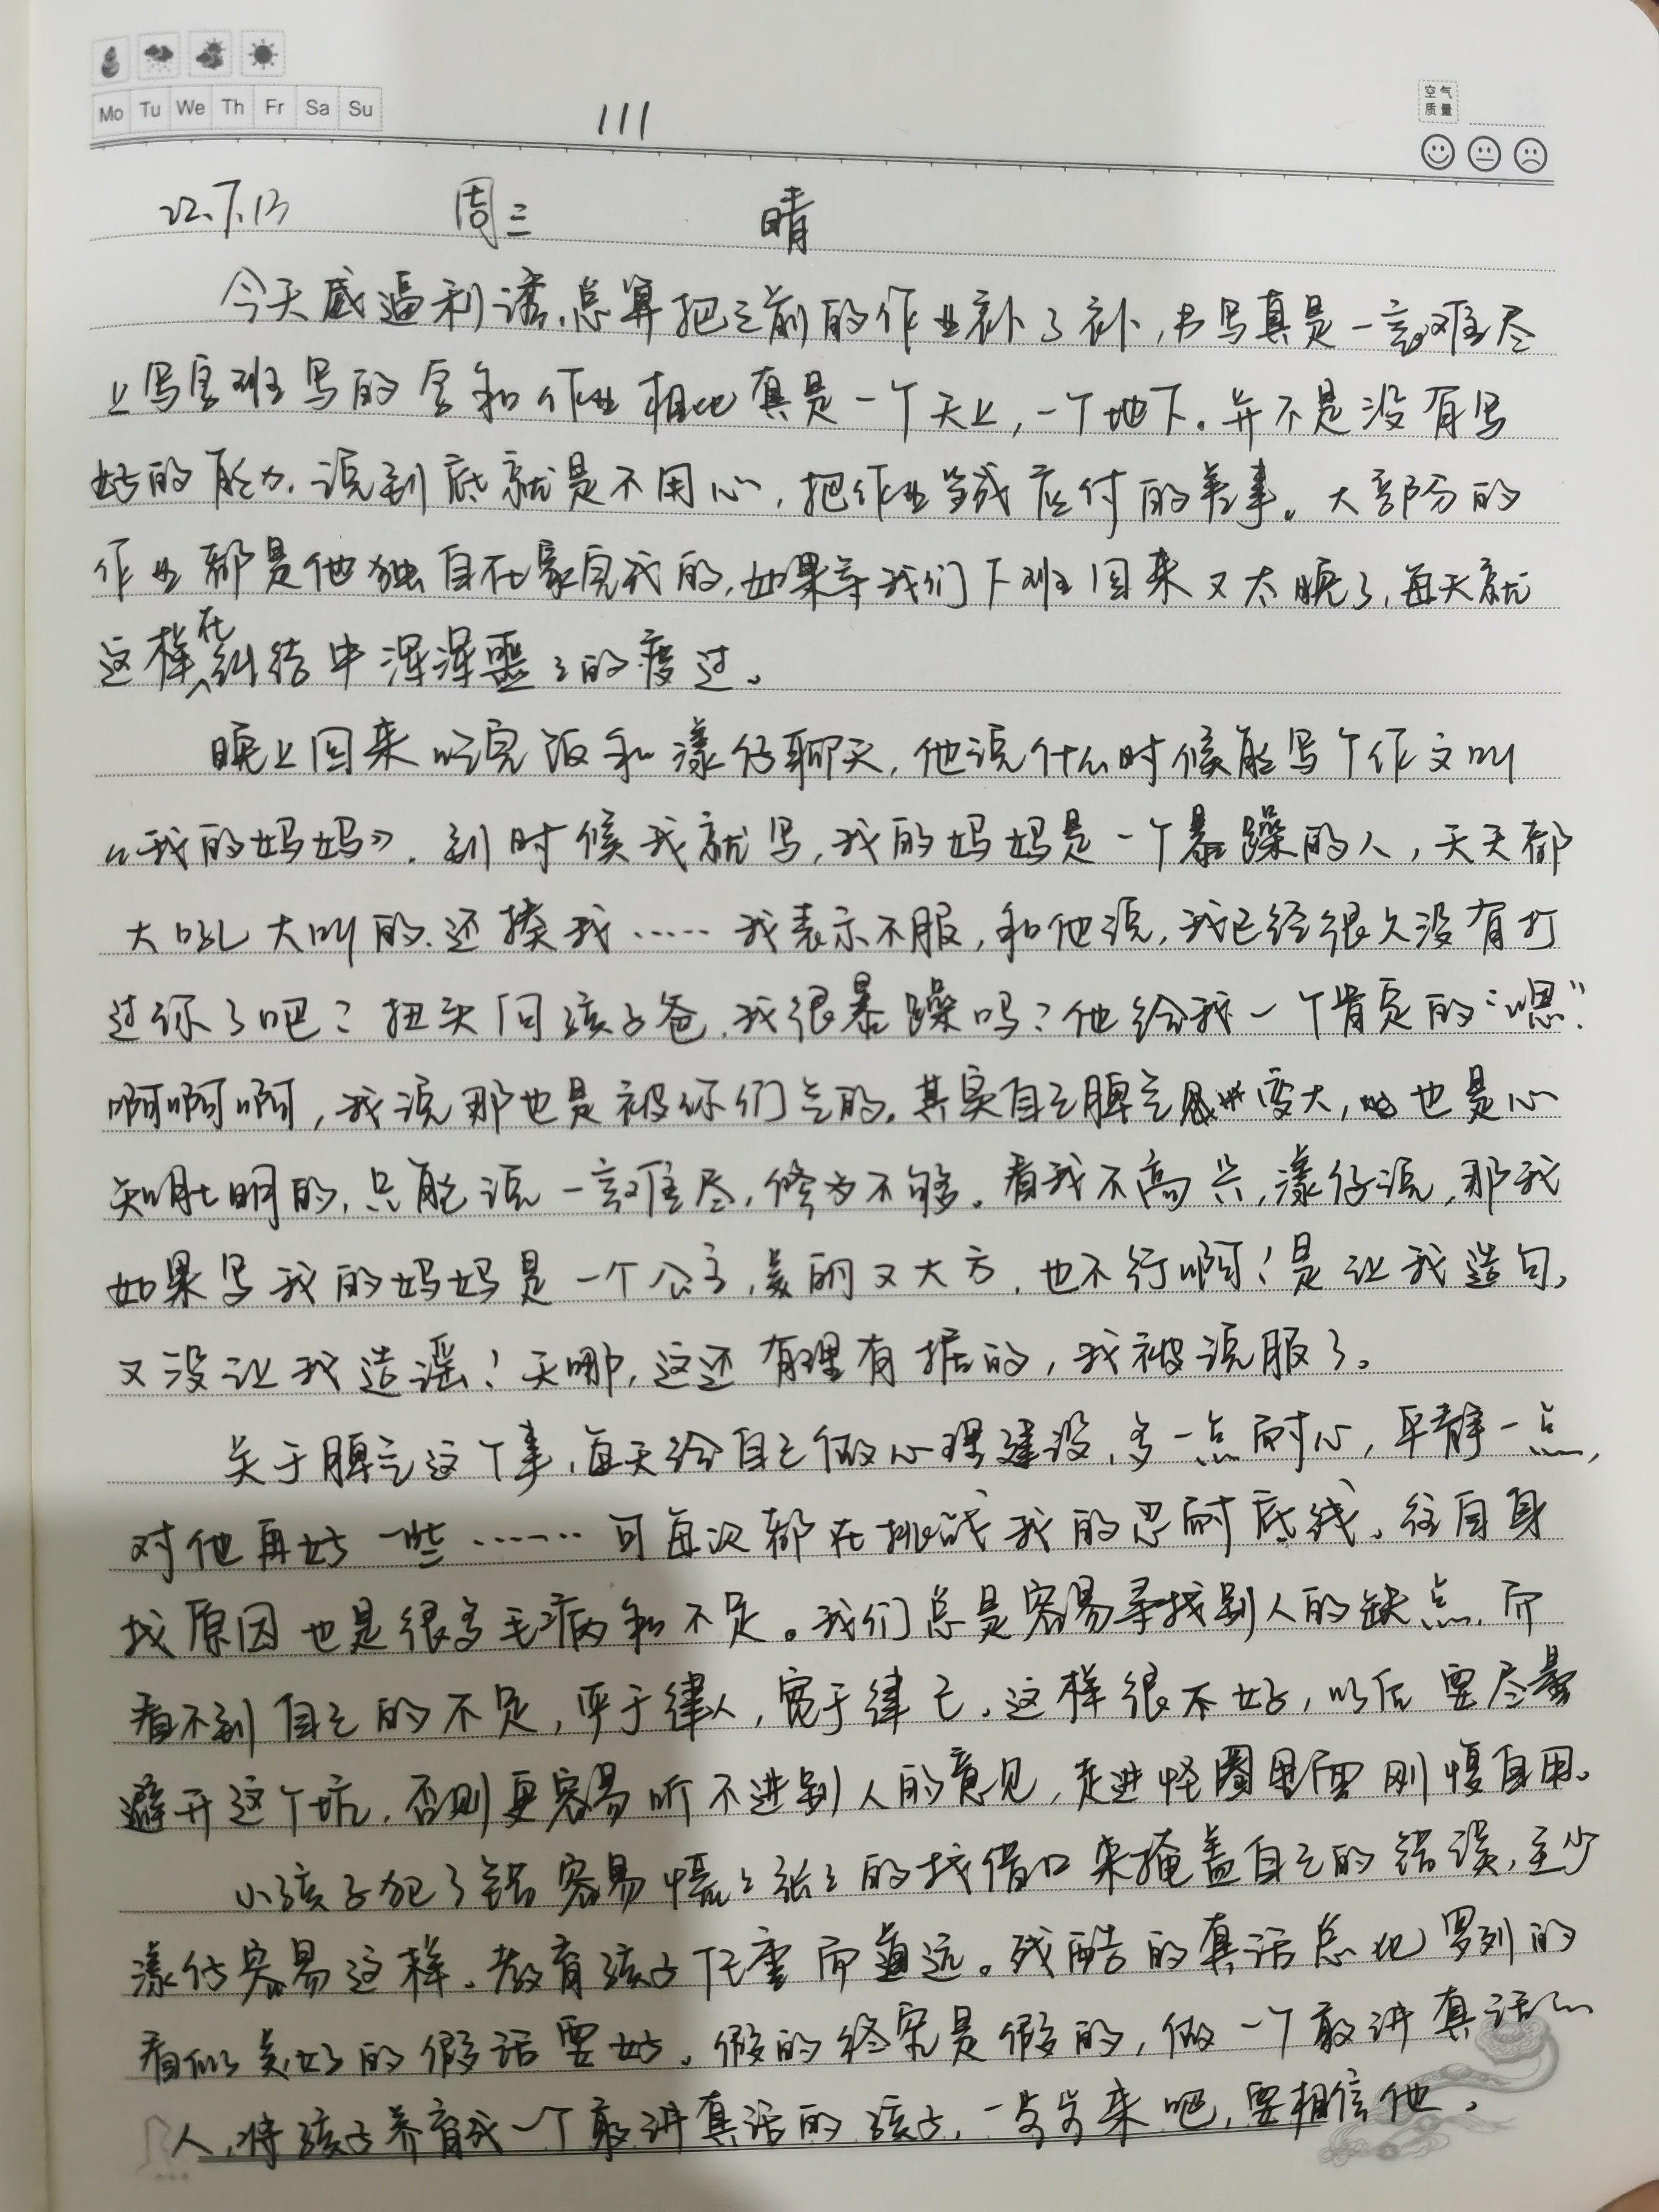 Mo Tu We Th Fr Sa Su
111
空气
质量
22.7.13 周三 晴
今天威逼利诱,总算把之前的作业补了补,书写真是一言难尽
上写字班写的字和作业相比真是一个天上,一个地下。并不是没有写
好的能力,说到底就是不用心,把作业当成应付的差事。大部分的
作业都是他独自在家完成的,如果等我们下班回来又太晚了,每天就
这样在纠结中浑浑噩々的度过。
晚上回来吃完饭和漾仔聊天,他说什么时候能写个作文叫
《我的妈妈》,到时候我就写,我的妈妈是一个暴躁的人,天天都
大吼大叫的,还揍我……我表示不服,和他说,我已经很久没有打
过你了吧?扭头问孩子爸,我很暴躁吗?他给我一个肯定的“嗯”
啊啊啊,我说那也是被你们气的。其实自己脾气变大,也是心
知肚明的,只能说一言难尽,修为不够。看我不高兴,漾仔说,那我
如果写我的妈妈是一个公主,美丽又大方,也不行啊!是让我造句,
又没让我造谣!天哪,这还有理有据的,我被说服了。
关于脾气这个事,每天给自己做心理建设,多一点耐心,平静一点,
对他再好一些……可每次都在挑战我的忍耐底线。往自身
找原因也是很多毛病和不足。我们总是容易寻找别人的缺点,而
看不到自己的不足,严于律人,宽于律己。这样很不好,以后要尽量
避开这个坑,否则更容易听不进别人的意见,走进怪圈里面刚愎自用。
小孩子犯了错容易慌々张々的找借口来掩盖自己的错误,至少
漾仔容易这样。教育孩子任重而道远。残酷的真话总比罗列的
看似美好的假话要好。假的终究是假的,做一个敢讲真话的
人,将孩子养育成一个敢讲真话的孩子,一步步来吧,要相信他。